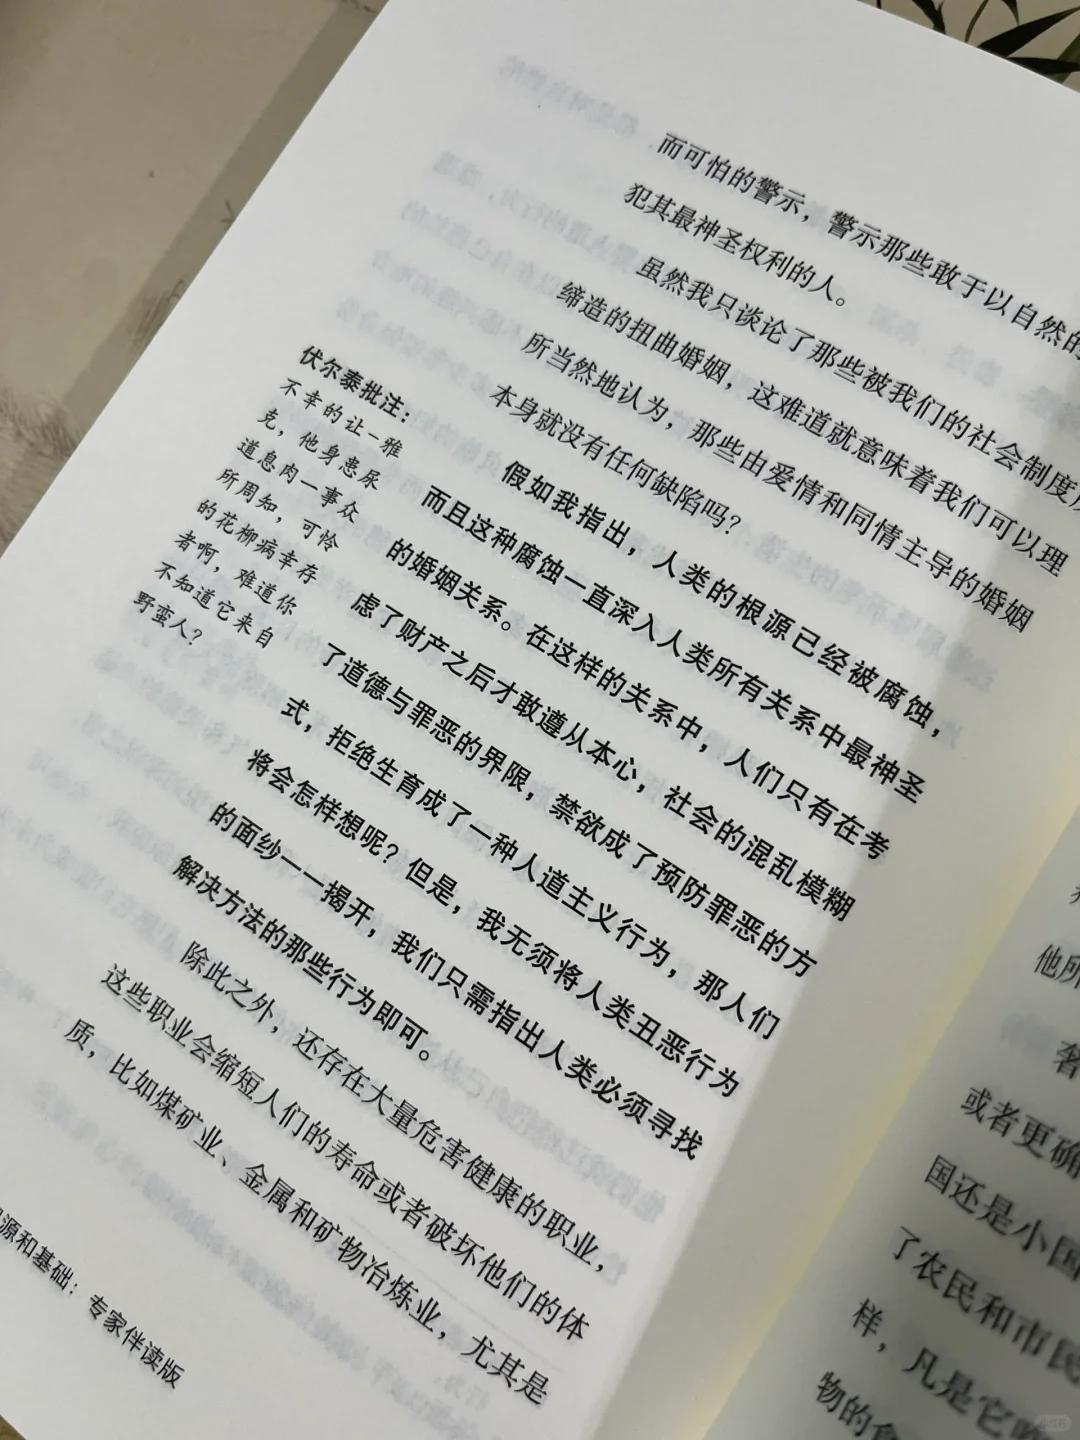 而可怕的警示，警示那些敢于以自然的
犯其最神圣权利的人。
虽然我只谈论了那些被我们的社会制度
缔造的扭曲婚姻，这难道就意味着我们可以理
所当然地认为，那些由爱情和同情主导的婚姻
本身就没有任何缺陷吗？
伏尔泰批注：
不幸的让-雅
克，他身患尿
道息肉一事众
所周知，可怜
的花柳病幸存
者啊，难道你
不知道它来自
野蛮人？
假如我指出，人类的根源已经被腐蚀，
而且这种腐蚀一直深入人类所有关系中最神圣
的婚姻关系。在这样的关系中，人们只有在考
虑了财产之后才敢遵从本心，社会的混乱模糊
了道德与罪恶的界限，禁欲成了预防罪恶的方
式，拒绝生育成了一种人道主义行为，那人们
将会怎样想呢？但是，我无须将人类丑恶行为
的面纱一一揭开，我们只需指出人类必须寻找
解决方法的那些行为即可。
除此之外，还存在大量危害健康的职业，
这些职业会缩短人们的寿命或者破坏他们的体
质，比如煤矿业、金属和矿物冶炼业，尤其是
源和基础：专家伴读版
他所
奢
或者更确
国还是小国
了农民和市民
样，凡是它
物的食
小红书